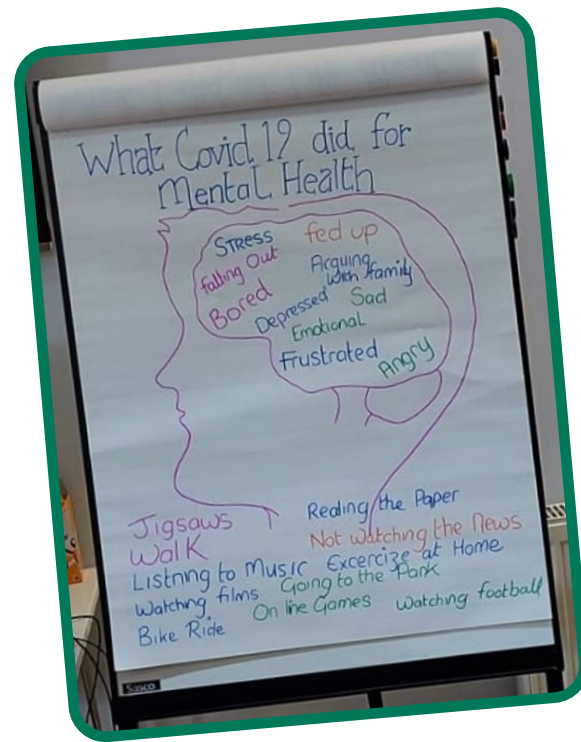 What Covid 19 did for
Mental Health
Stress
fed up
falling Out
Acquing
with family
Bored
Depressed
Sad
Emotional
Frustrated
Angry
Jigsaws
Reading the Paper
Walk
Not watching the News
Listning to Music
Excercize at Home
Watching films
Going to the Park
On line Games
Watching football
Bike Ride
Sasco